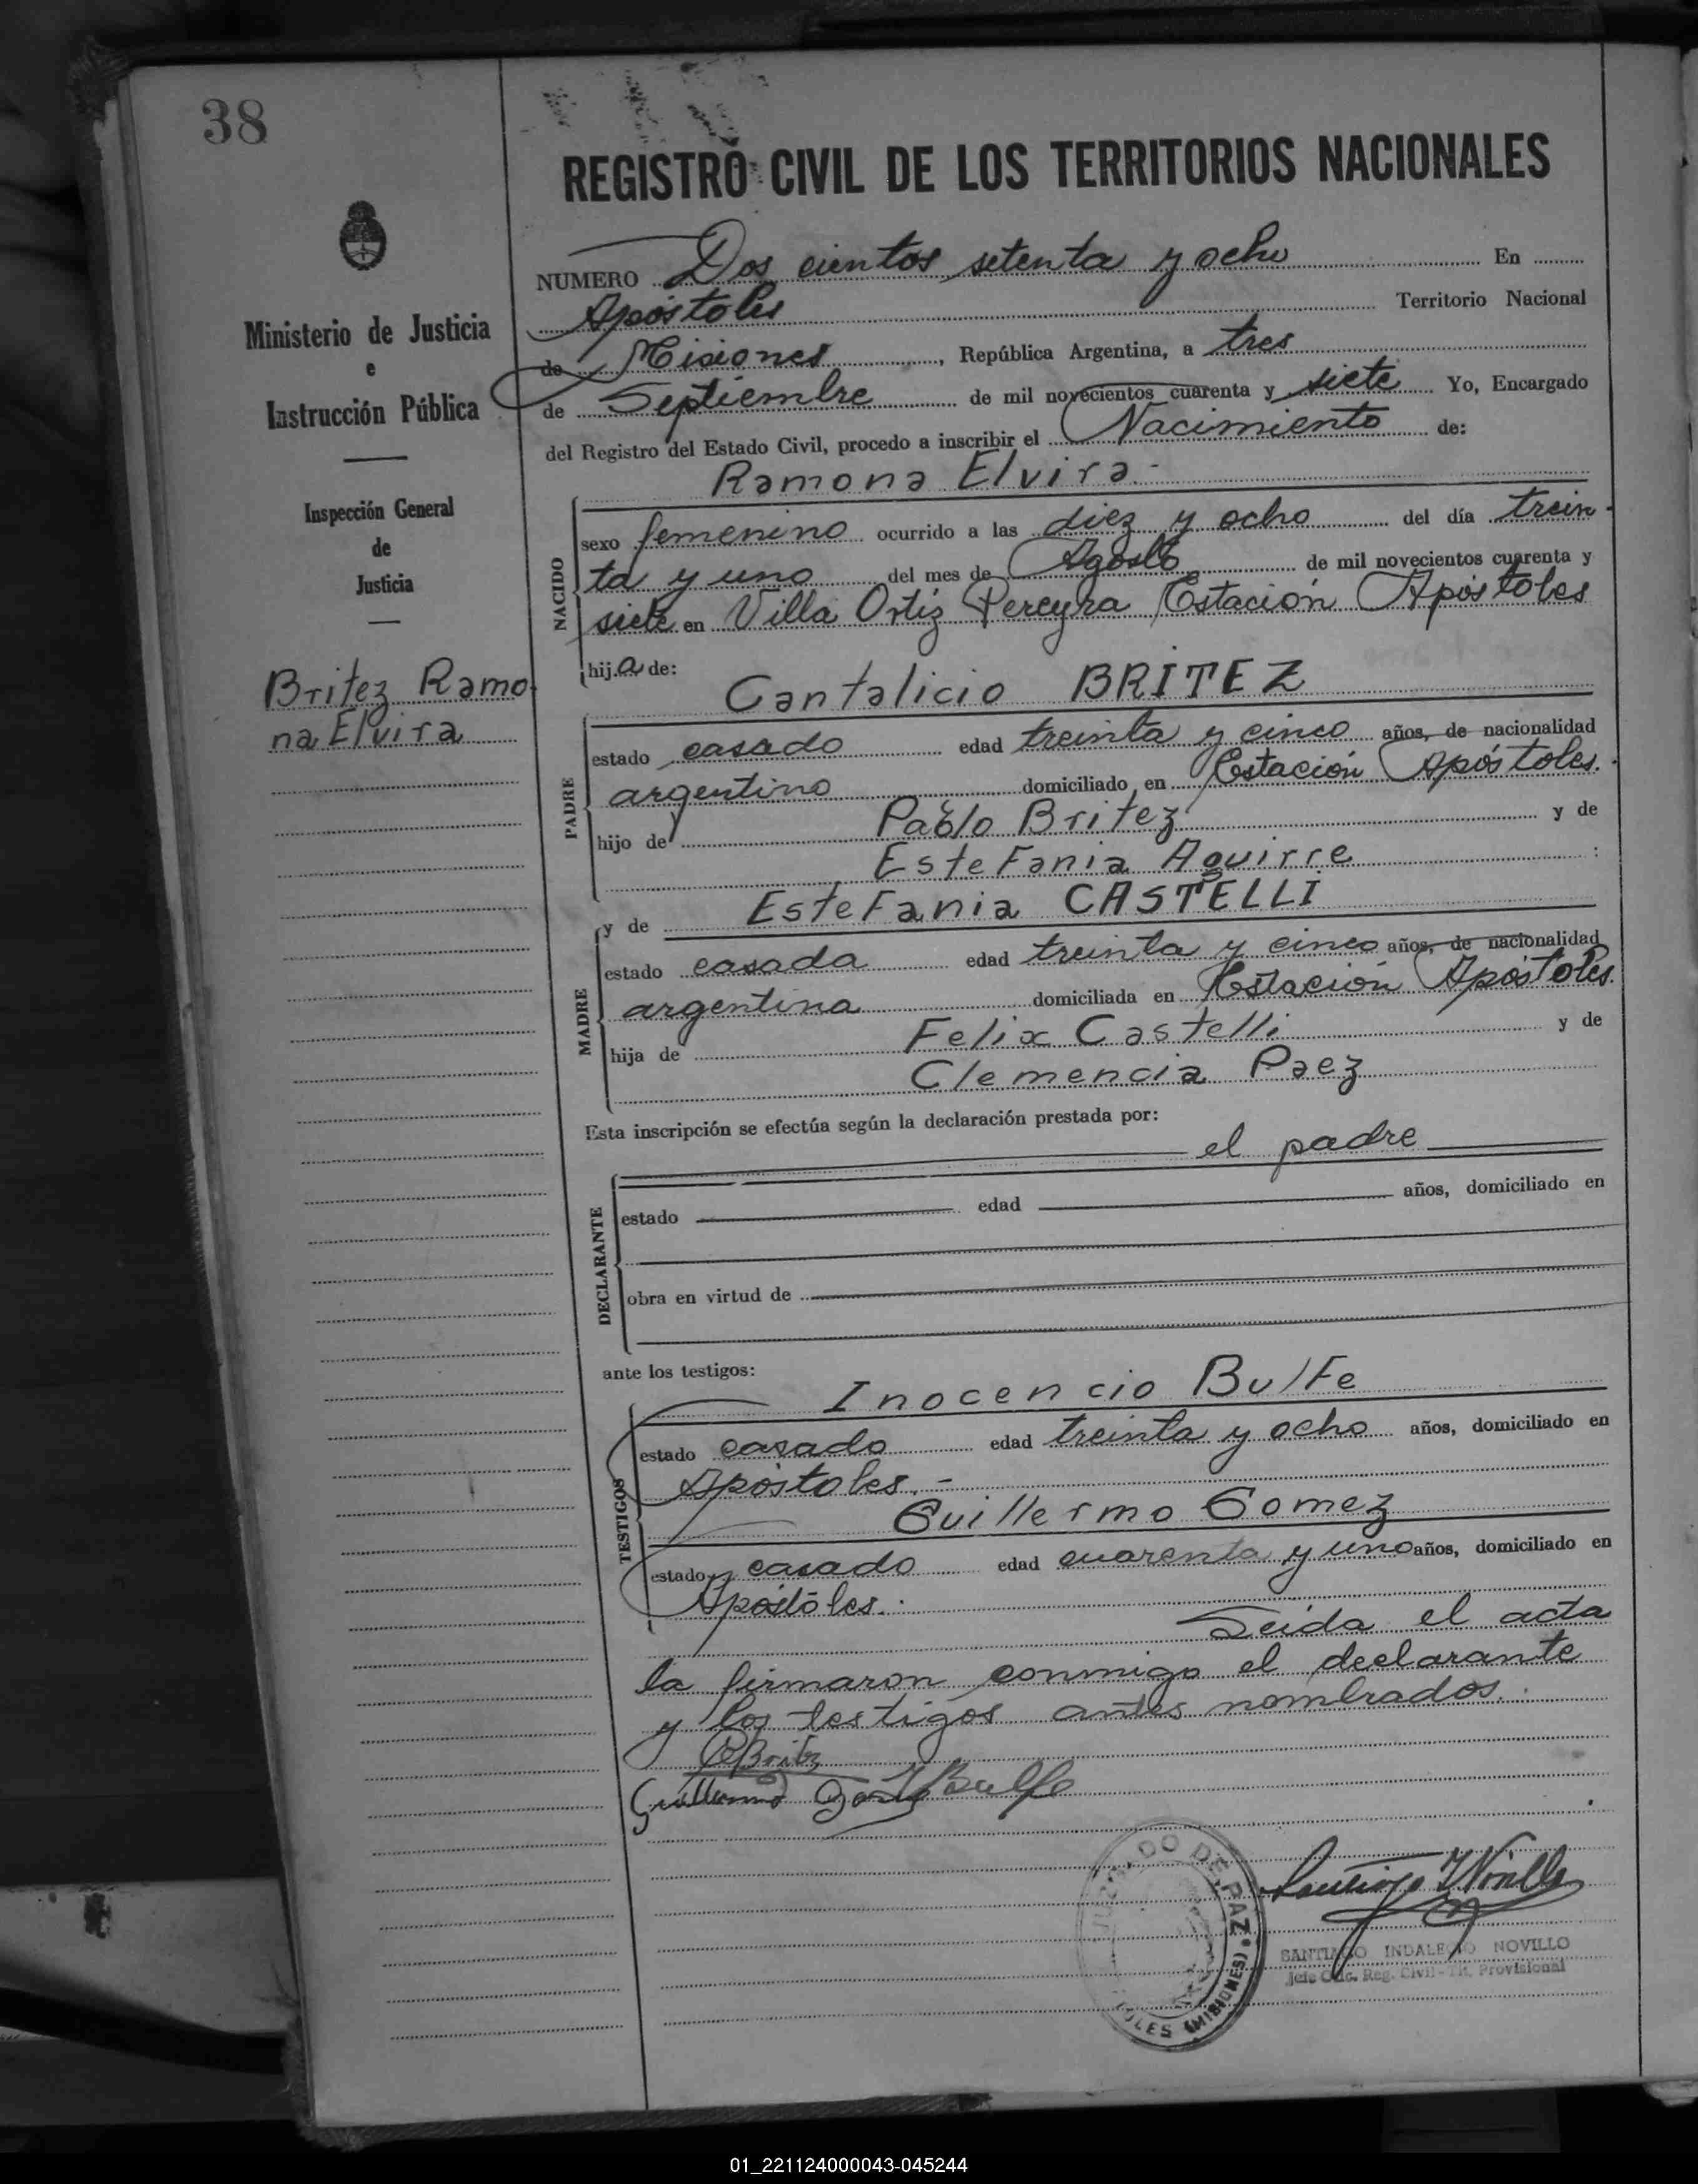 38
REGISTRO CIVIL DE LOS TERRITORIOS NACIONALES
Ministerio de Justicia
e
Instrucción Pública
Inspección General
de
Justicia
Britez Ramo
na Elvira
NUMERO Dos cientos setenta y ocho En
Apóstoles Territorio Nacional
de Misiones, República Argentina, a tres
de Septiembre de mil novecientos cuarenta y siete Yo, Encargado
del Registro del Estado Civil, procedo a inscribir el Nacimiento de:
Ramona Elvira.-
NACIDO
sexo femenino ocurrido a las diez y ocho del día trein-
ta y uno del mes de Agosto de mil novecientos cuarenta y
siete en Villa Ortiz Pereyra Estación Apóstoles
hija de:
Cantalicio BRITEZ
PADRE
estado casado edad treinta y cinco años, de nacionalidad
argentino domiciliado en Estación Apóstoles.
hijo de Pablo Britez y de
Estefania Aguirre :
y de Estefania CASTELLI
MADRE
estado casada edad treinta y cinco años, de nacionalidad
argentina domiciliada en Estación Apóstoles.
hija de Felix Castelli y de
Clemencia Paez
Esta inscripción se efectúa según la declaración prestada por:
el padre
DECLARANTE
estado edad años, domiciliado en
obra en virtud de
ante los testigos:
Inocencio Bulfe
TESTIGOS
estado casado edad treinta y ocho años, domiciliado en
Apóstoles.-
Guillermo Gomez
estado casado edad cuarenta y uno años, domiciliado en
Apóstoles.
Leida el acta
la firmaron conmigo el declarante
y los testigos antes nombrados.
CBritz
Guillermo Bulfe
JUZGADO DE PAZ
(MISIONES)
Santiago I Novillo
SANTIAGO INDALECIO NOVILLO
Jefe Ofic. Reg. Civil - Tit. Provisional
01_221124000043-045244